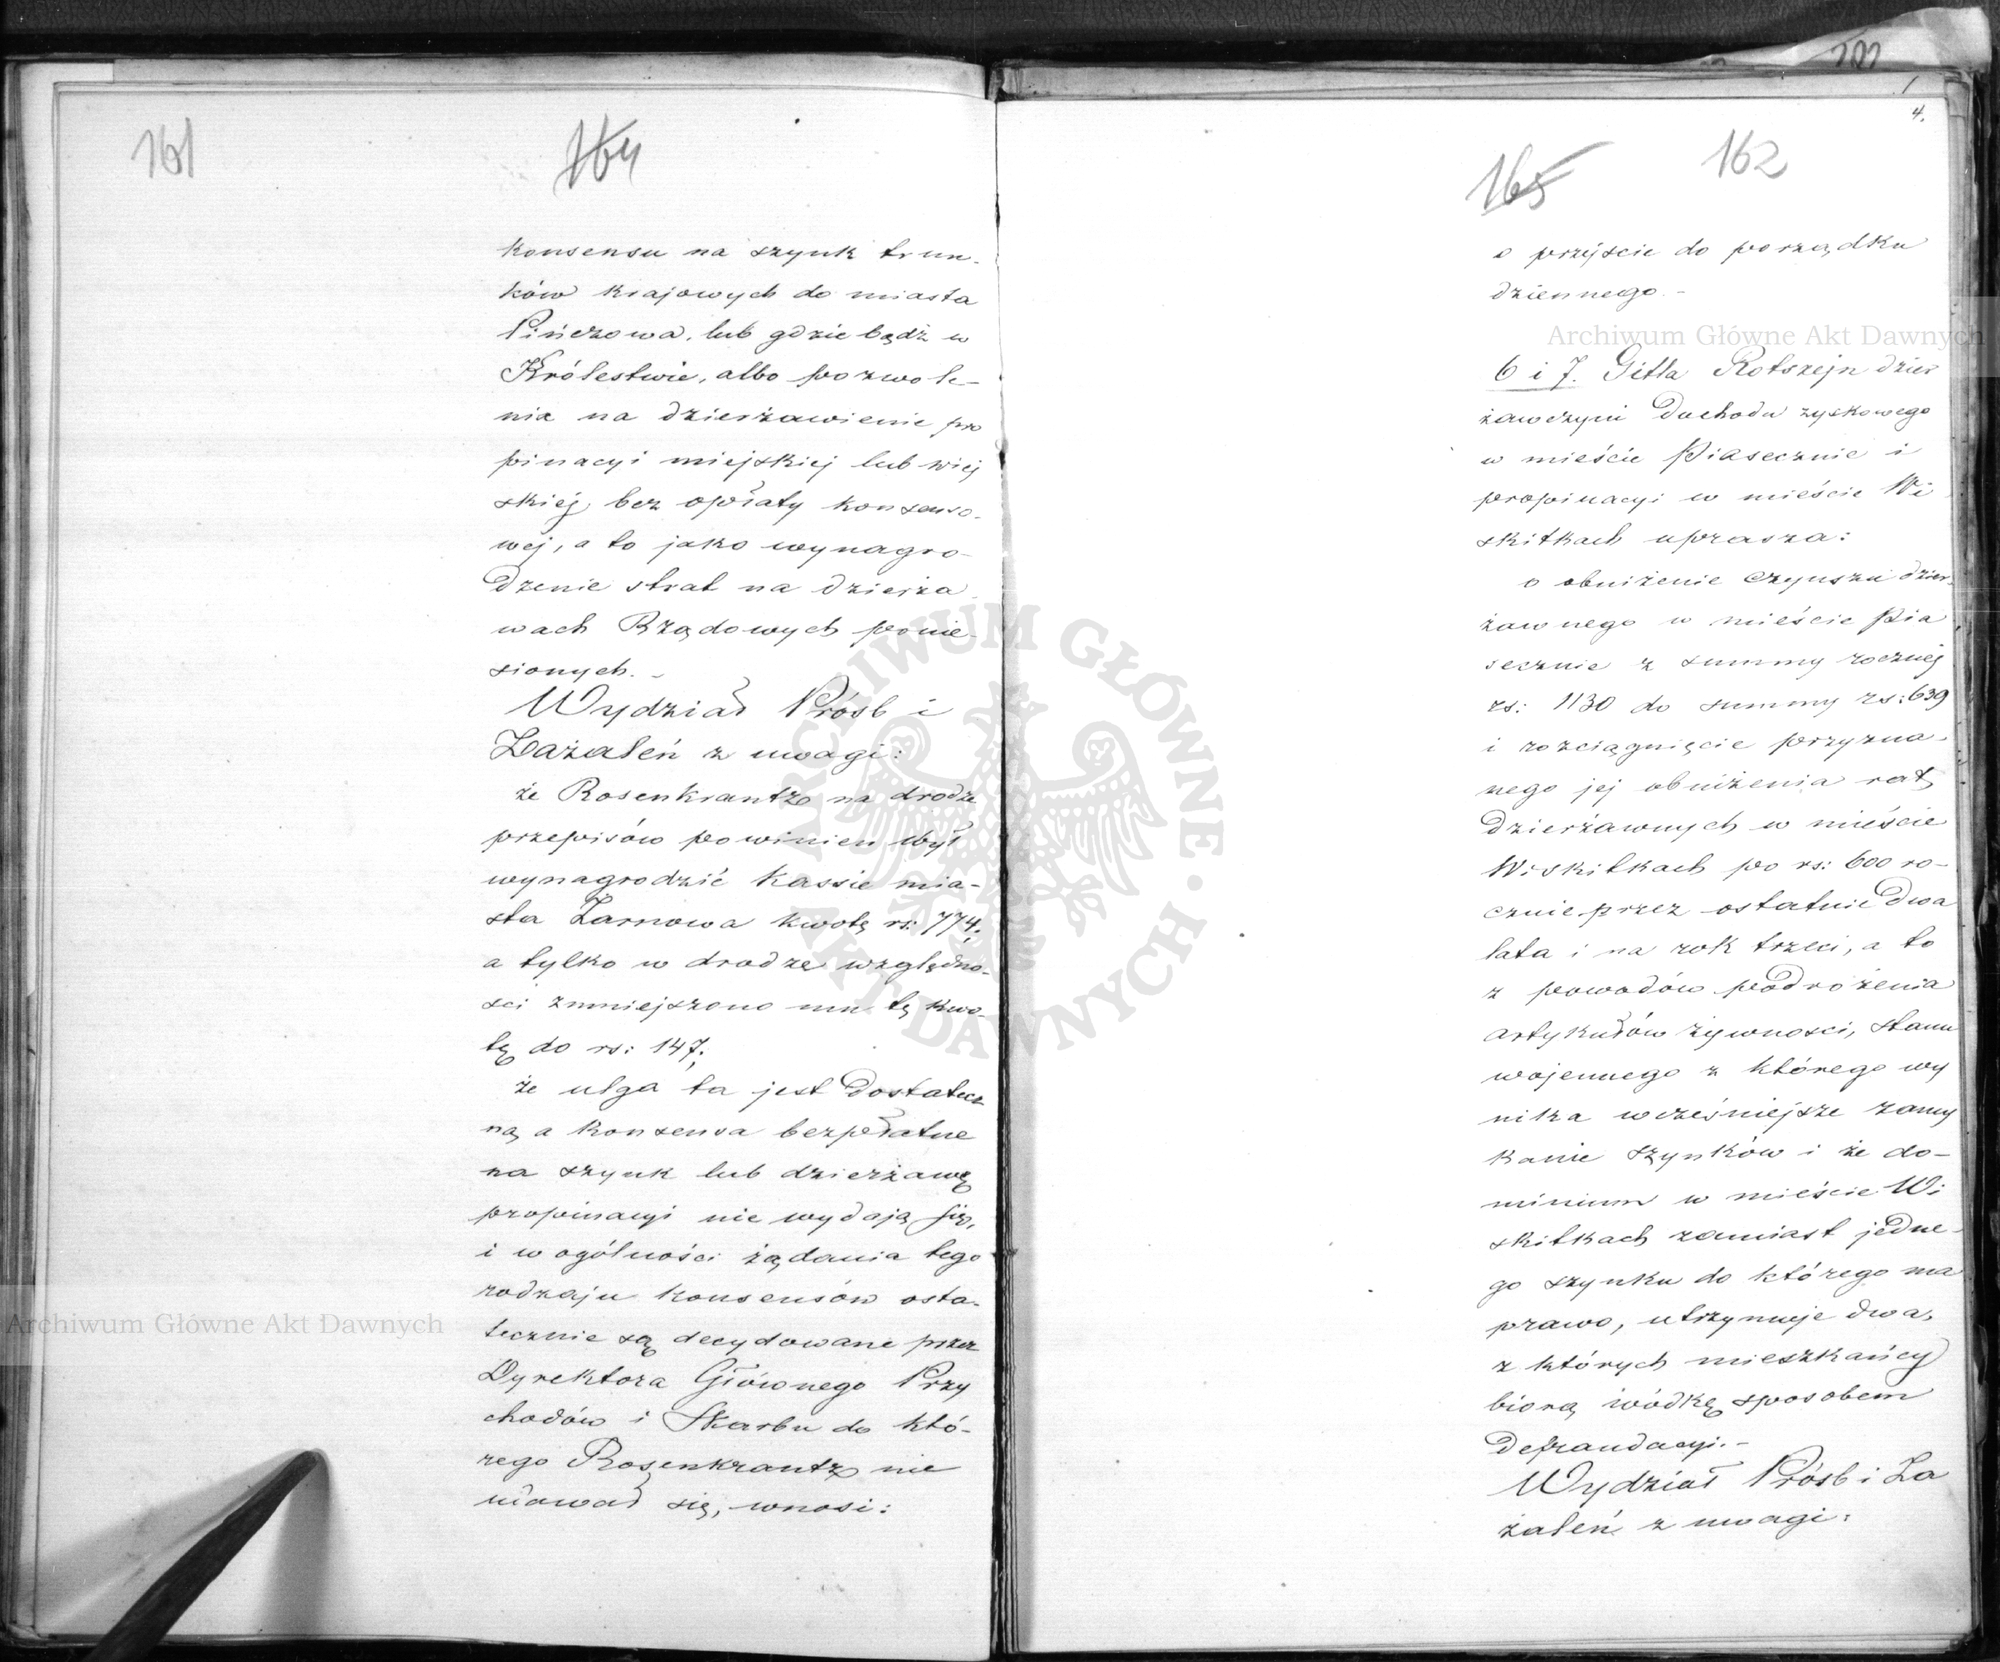 161
164
konsensu na szynk trun-
ków krajowych do miasta
Pińczowa, lub gdzie bądź w
Królestwie, albo pozwole-
nia na dzierżawienie pro
pinacyi miejskiej lub wiej
skiej bez opłaty konsenso-
wej, a to jako wynagro-
dzenie strat na dzierża-
wach Rządowych ponie-
sionych. -
Wydział Próśb i
Zażaleń z uwagi:
że Rosenkrantz na drodze
przepisów powinien był
wynagrodzić Kassie mia-
sta Żarnowa kwotę rs: 774;
a tylko w drodze względno-
ści zmniejszono mu tę kwo-
tę do rs: 147;
że ulga ta jest dostatecz
ną a konsensa bezpłatne
na szynk lub dzierżawę
propinacyi nie wydają się,
i w ogólności żądania tego
rodzaju konsensów osta-
tecznie są decydowane przez
Dyrektora Głównego Przy
chodów i Skarbu do któ-
rego Rosenkrantz nie
udawał się, wnosi:
101
4.
165
162
o przejście do porządku
dziennego. -
6 i 7. Gitla Rotszejn dzier
żawczyni dochodu zyskowego
w mieście Piasecznie i
propinacyi w mieście Wi
skitkach uprasza:
o obniżenie czynszu dzier-
żawnego w mieście Pia
secznie z summy rocznej
rs: 1130 do summy rs: 639
i rozciągnięcie przyzna-
nego jej obniżenia raty
dzierżawnych w mieście
Wiskitkach po rs: 600 ro-
cznie przez ostatnie dwa
lata i na rok trzeci, a to
z powodów podrożenia
artykułów żywności, stanu
wojennego z którego wy
nika wcześniejsze zamy
kanie szynków i że do-
minium w mieście Wi
skitkach zamiast jedne-
go szynku do którego ma
prawo, utrzymuje dwa,
z których mieszkańcy
biorą wódkę sposobem
defraudacyi. -
Wydział Próśb i Za
żaleń z uwagi:
Archiwum Główne Akt Dawnych
Archiwum Główne Akt Dawnych
ARCHIWUM GŁÓWNE · AKT DAWNYCH ·